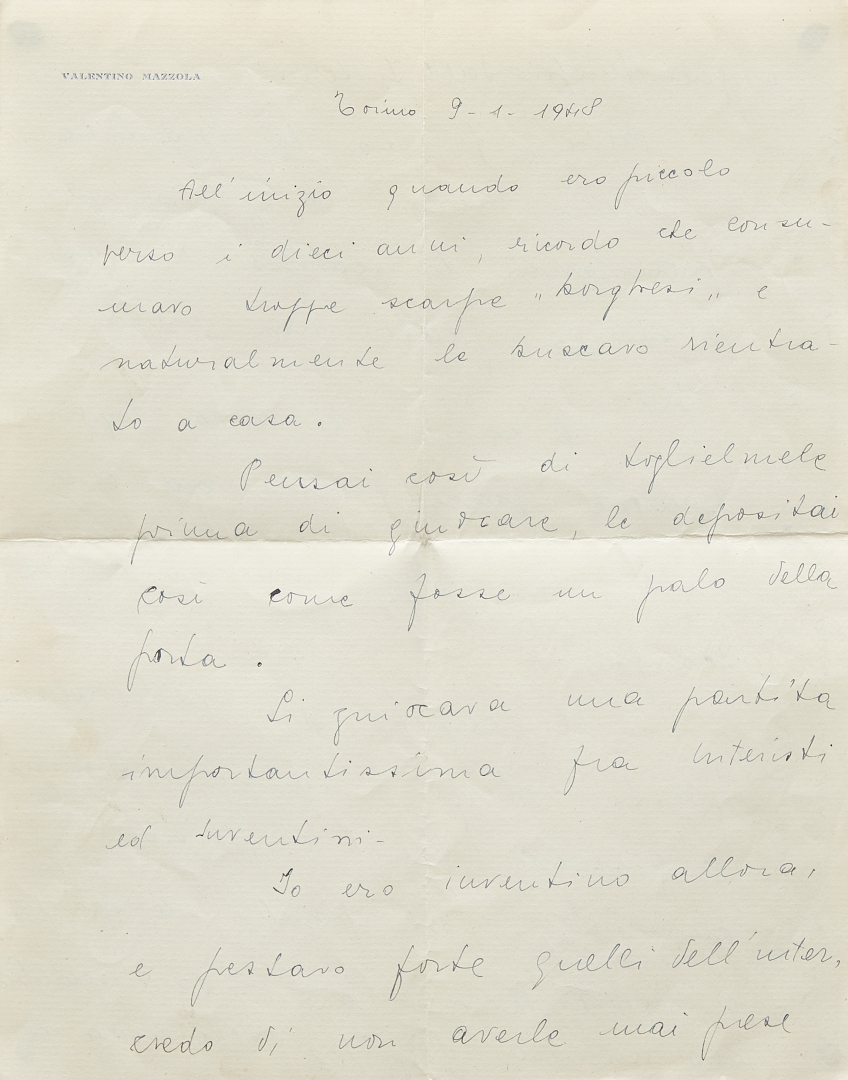 VALENTINO MAZZOLA
Torino 9-1-1948
All'inizio quando ero piccolo
verso i dieci anni, ricordo che consu-
mavo troppe scarpe „borghesi„ e
naturalmente le buscavo rientra-
to a casa.
Pensai così di togliermele
prima di giuocare, le depositai
così come fosse un palo della
porta.
Si giuocava una partita
importantissima fra Interisti
ed Iuventini-
Io ero iuventino allora,
e pestavo forte quelli dell'inter,
credo di non averle mai prese